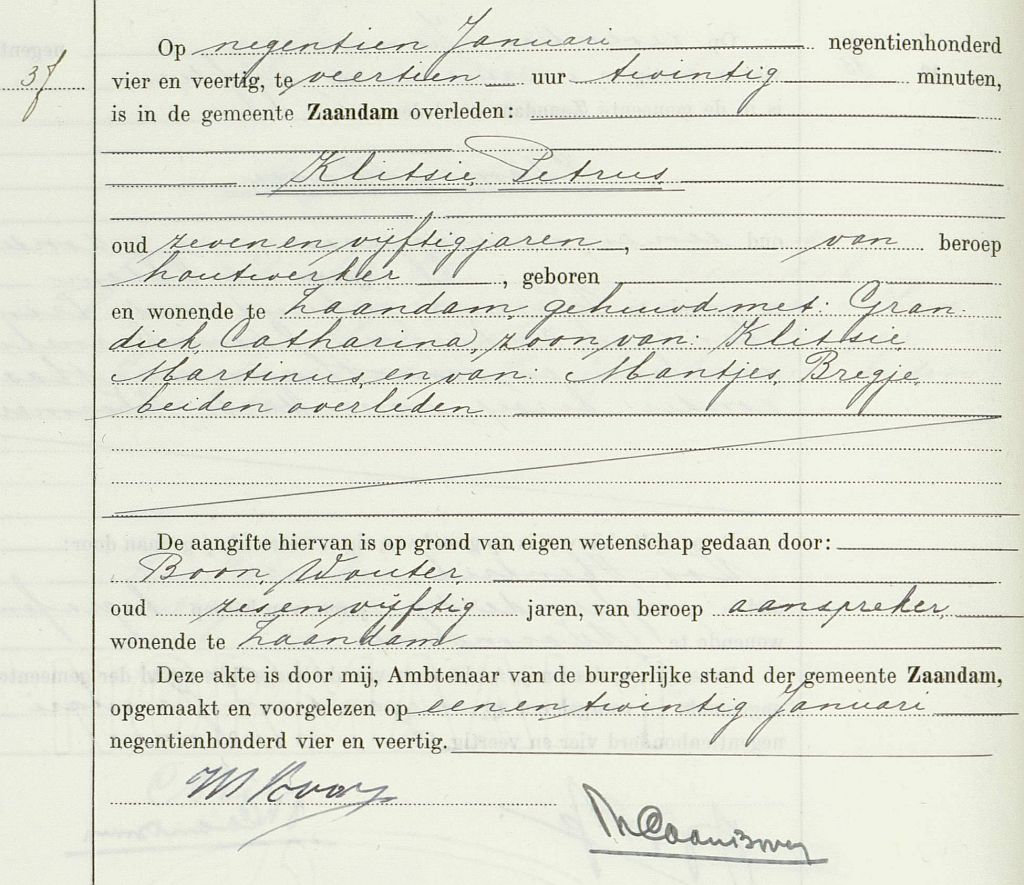 37
Op negentien Januari negentienhonderd
vier en veertig, te veertien uur twintig minuten,
is in de gemeente Zaandam overleden:
Klitsie, Petrus,
oud zeven en vijftig jaren, van beroep
houtwerker, geboren
en wonende te Zaandam, gehuwd met: Gran-
diek, Catharina, zoon van: Klitsie,
Martinus, en van: Mantjes, Bregje,
beiden overleden.
De aangifte hiervan is op grond van eigen wetenschap gedaan door:
Boon, Wouter,
oud zes en vijftig jaren, van beroep aanspreker,
wonende te Zaandam.
Deze akte is door mij, Ambtenaar van de burgerlijke stand der gemeente Zaandam,
opgemaakt en voorgelezen op een en twintig Januari
negentienhonderd vier en veertig.
W Boon